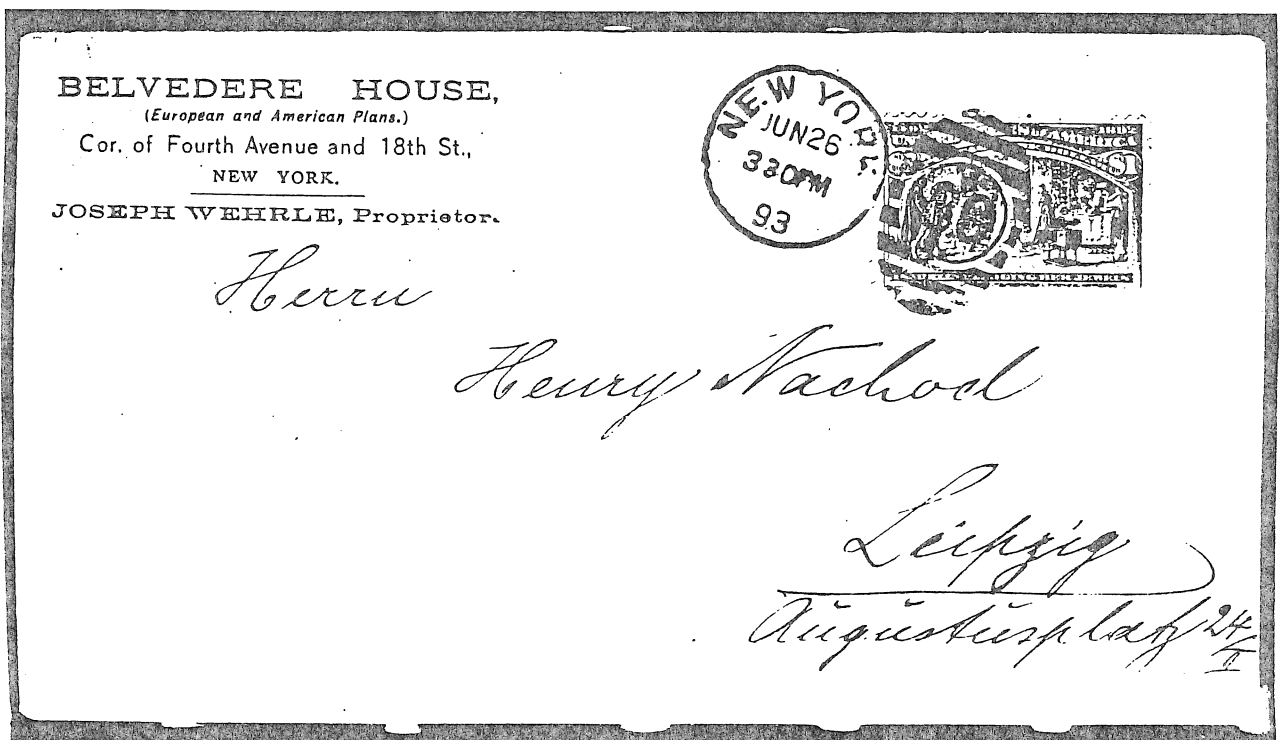 BELVEDERE HOUSE,
(European and American Plans.)
Cor. of Fourth Avenue and 18th St.,
NEW YORK.
JOSEPH WEHRLE, Proprietor.
NEW YORK
JUN 26
330PM
93
$1
Herrn
Henry Nachod
Leipzig
Augustusplatz 24/I